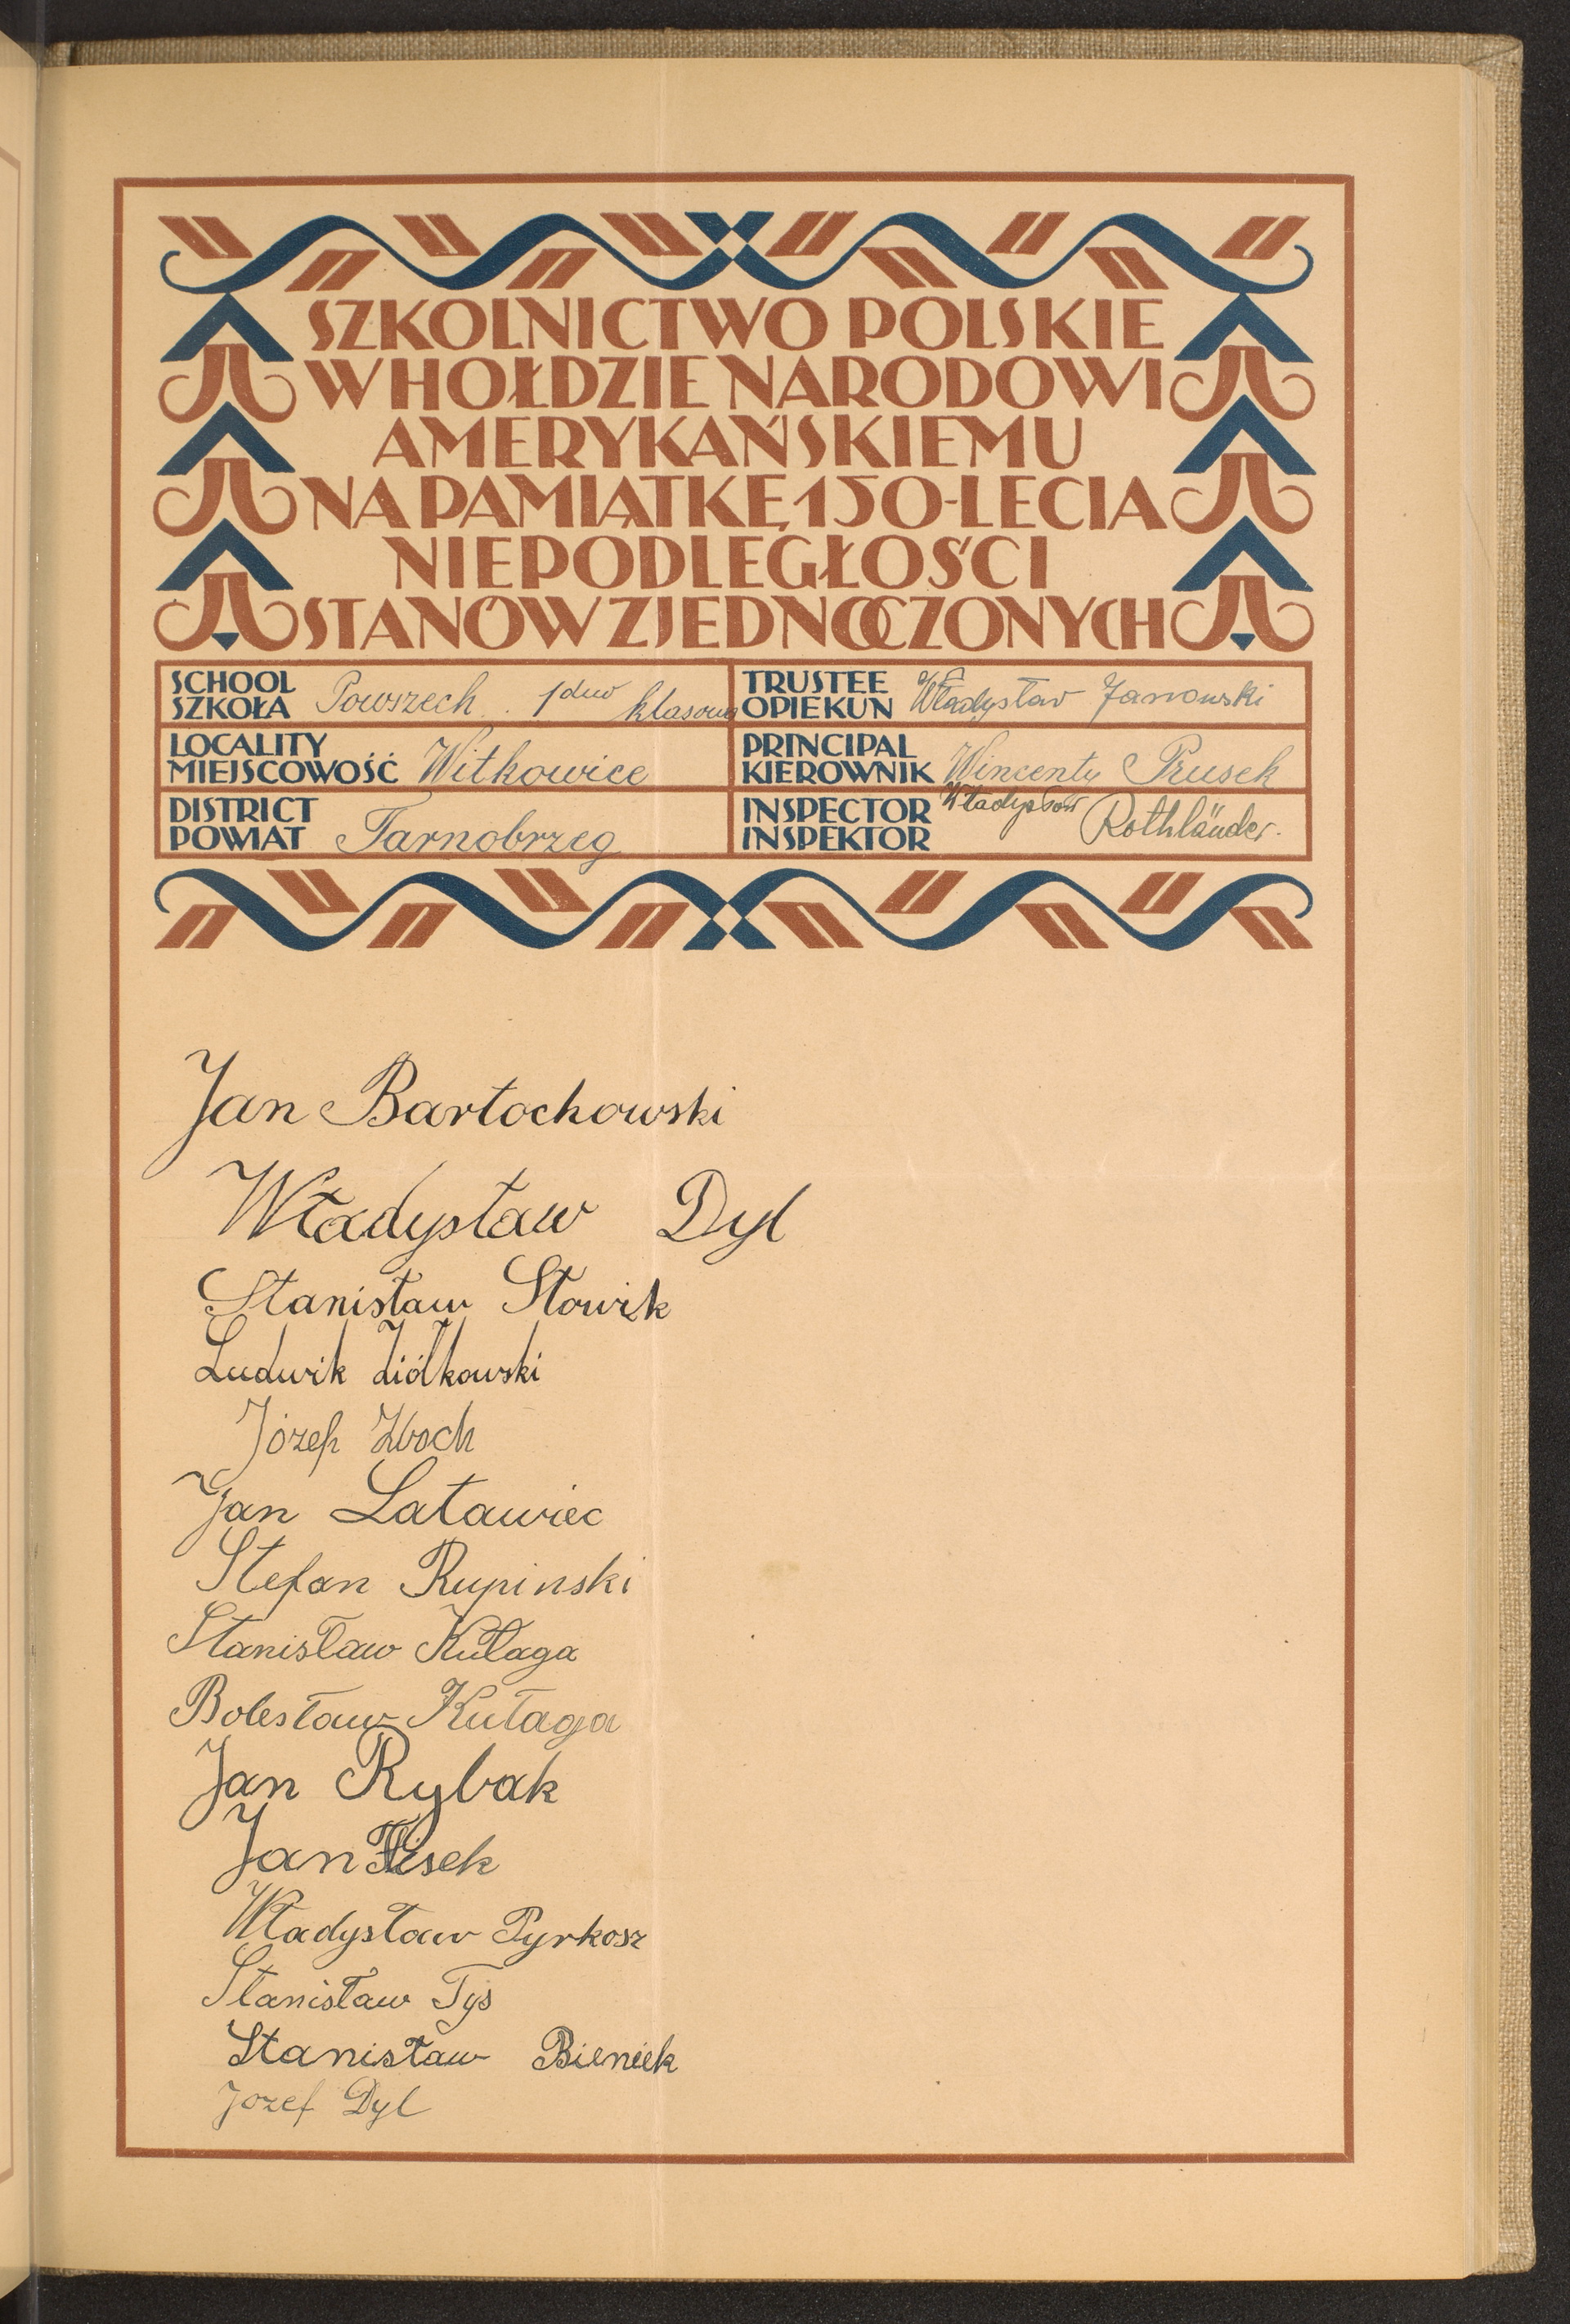 SZKOLNICTWO POLSKIE
W HOŁDZIE NARODOWI
AMERYKAŃSKIEMU
NA PAMIĄTKĘ 150-LECIA
NIEPODLEGŁOŚCI
STANÓW ZJEDNOCZONYCH
SCHOOL
SZKOŁA Powszech. 1 duw klasowa
TRUSTEE
OPIEKUN Władysław Janowski
LOCALITY
MIEJSCOWOŚĆ Witkowice
PRINCIPAL
KIEROWNIK Wincenty Prusek
DISTRICT
POWIAT Tarnobrzeg
INSPECTOR
INSPEKTOR Władysław Rothländer.
Jan Bartochowski
Władysław Dyl
Stanisław Słowik
Ludwik Ziółkowski
Józef Zboch
Jan Latawiec
Stefan Rupinski
Stanisław Kułaga
Bolesław Kułaga
Jan Rybak
Jan
Władysław Pyrkosz
Stanisław Tys
Stanisław Bieniek
Jozef Dyl